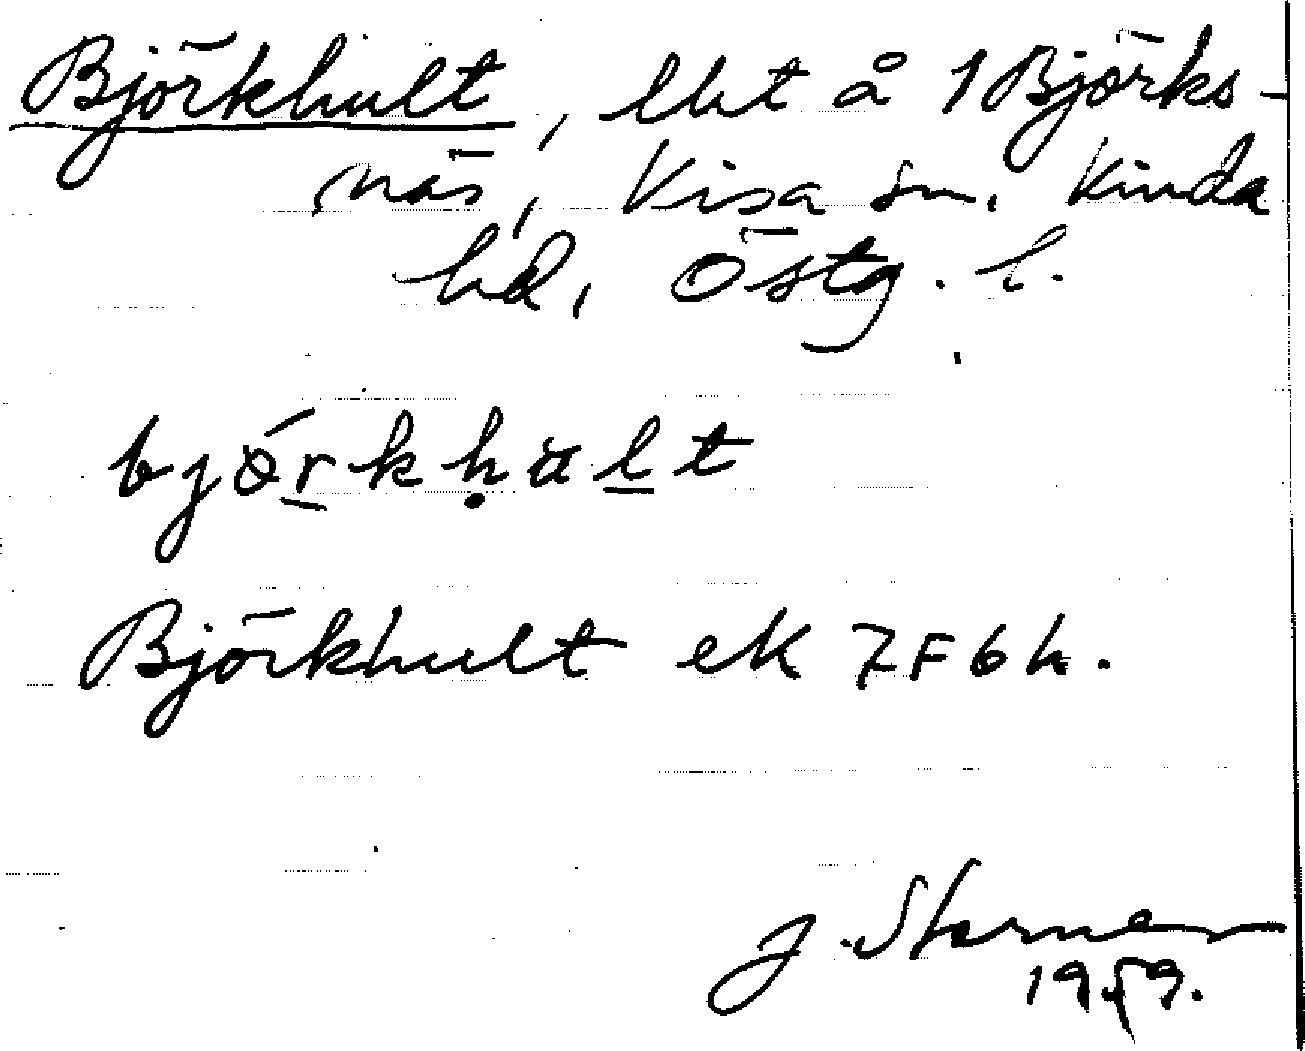 Björkhult, lht å 1 Björks-
näs, Kisa sn, Kinda
hd, Östg. l.
bjǿr̲kḥul̲t
Björkhult ek 7F6h.
J. Starner
1959.